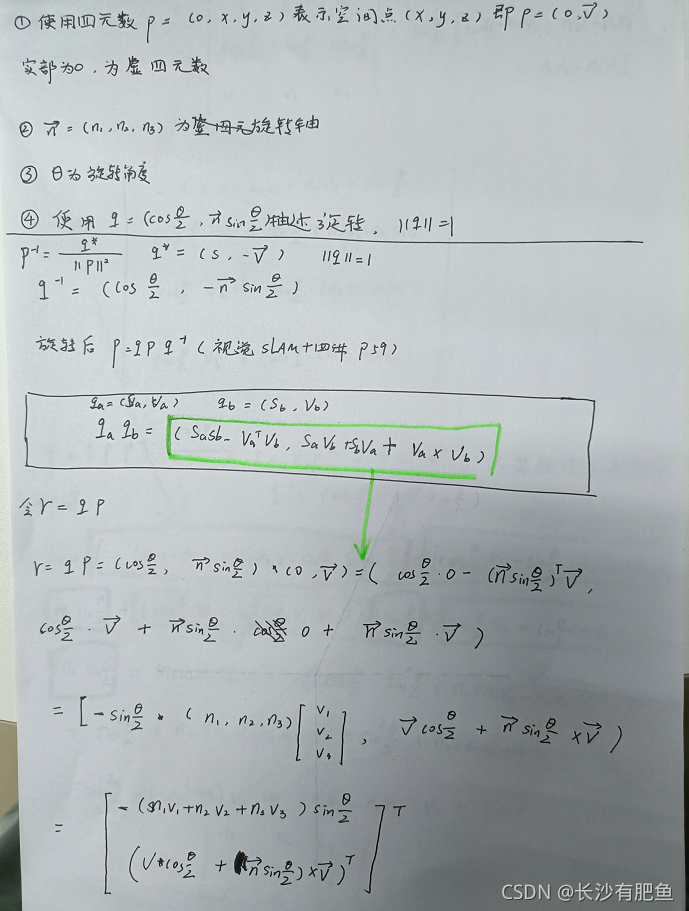 ① 使用四元数 p = (0, x, y, z) 表示空间点 (x, y, z) 即 p = (0, v⃗)
实部为0, 为虚四元数
② n⃗ = (n₁, n₂, n₃) 为旋转轴
③ θ为旋转角度
④ 使用 q = (cos θ/2, n⃗ sin θ/2) 描述了旋转, ||q|| = 1
p⁻¹ = q*/||p||² q* = (s, -v⃗) ||q|| = 1
q⁻¹ = (cos θ/2, -n⃗ sin θ/2)
旋转后 p = q p q⁻¹ (视觉SLAM十四讲 P59)
qa = (Sa, Va) qb = (Sb, Vb)
qa qb = (SaSb - VaᵀVb, SaVb + SbVa + Va × Vb)
令 r = q p
r = q p = (cos θ/2, n⃗ sin θ/2) * (0, v⃗) = ( cos θ/2 · 0 - (n⃗ sin θ/2)ᵀ v⃗,
cos θ/2 · v⃗ + n⃗ sin θ/2 · 0 + n⃗ sin θ/2 · v⃗ )
= [ - sin θ/2 * (n₁, n₂, n₃) [ v₁ v₂ v₃ ], v⃗ cos θ/2 + n⃗ sin θ/2 × v⃗ )
= [ - (n₁v₁ + n₂v₂ + n₃v₃) sin θ/2
(v * cos θ/2 + n⃗ sin θ/2) × v⃗)ᵀ ]ᵀ
CSDN @长沙有肥鱼